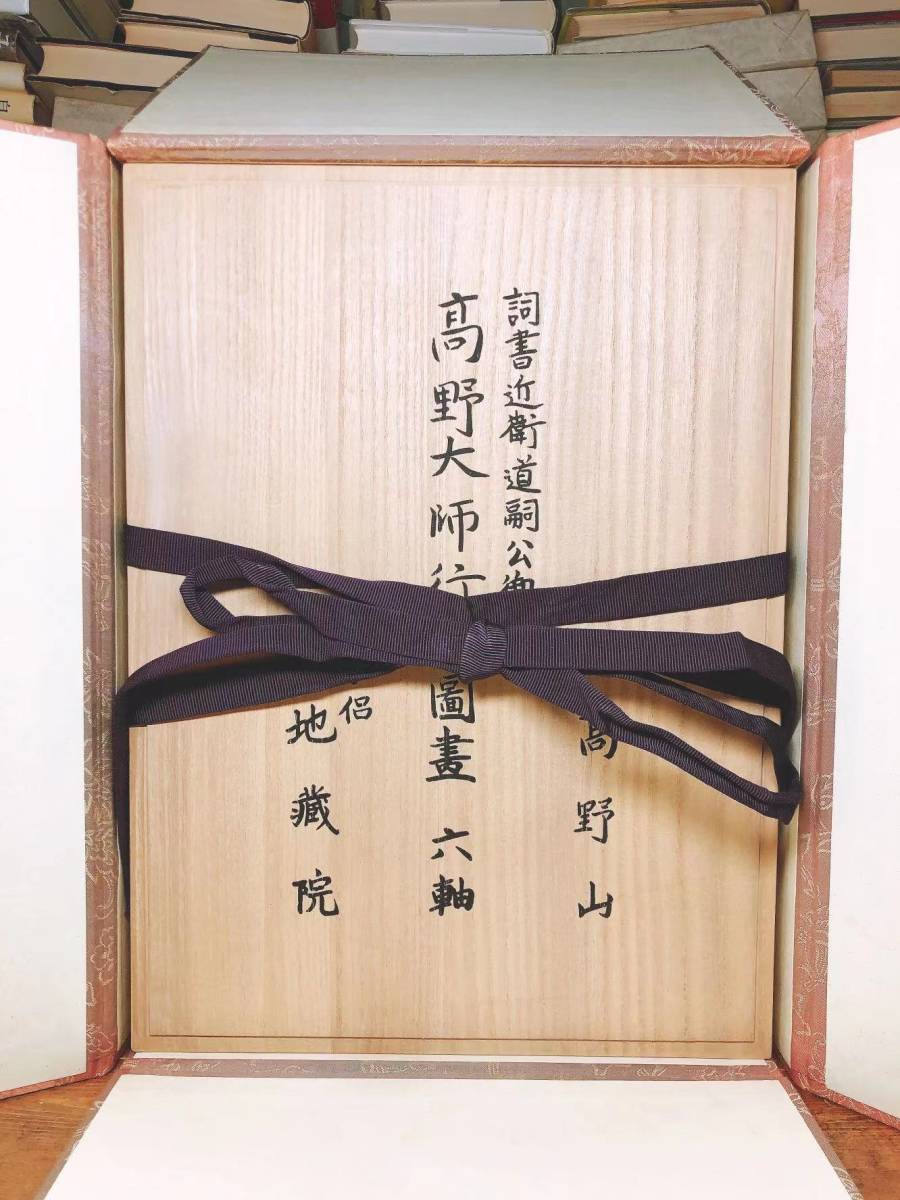 高野山
詞書近衛道嗣公御
高野大師行
圖畫 六軸
侶
地藏院